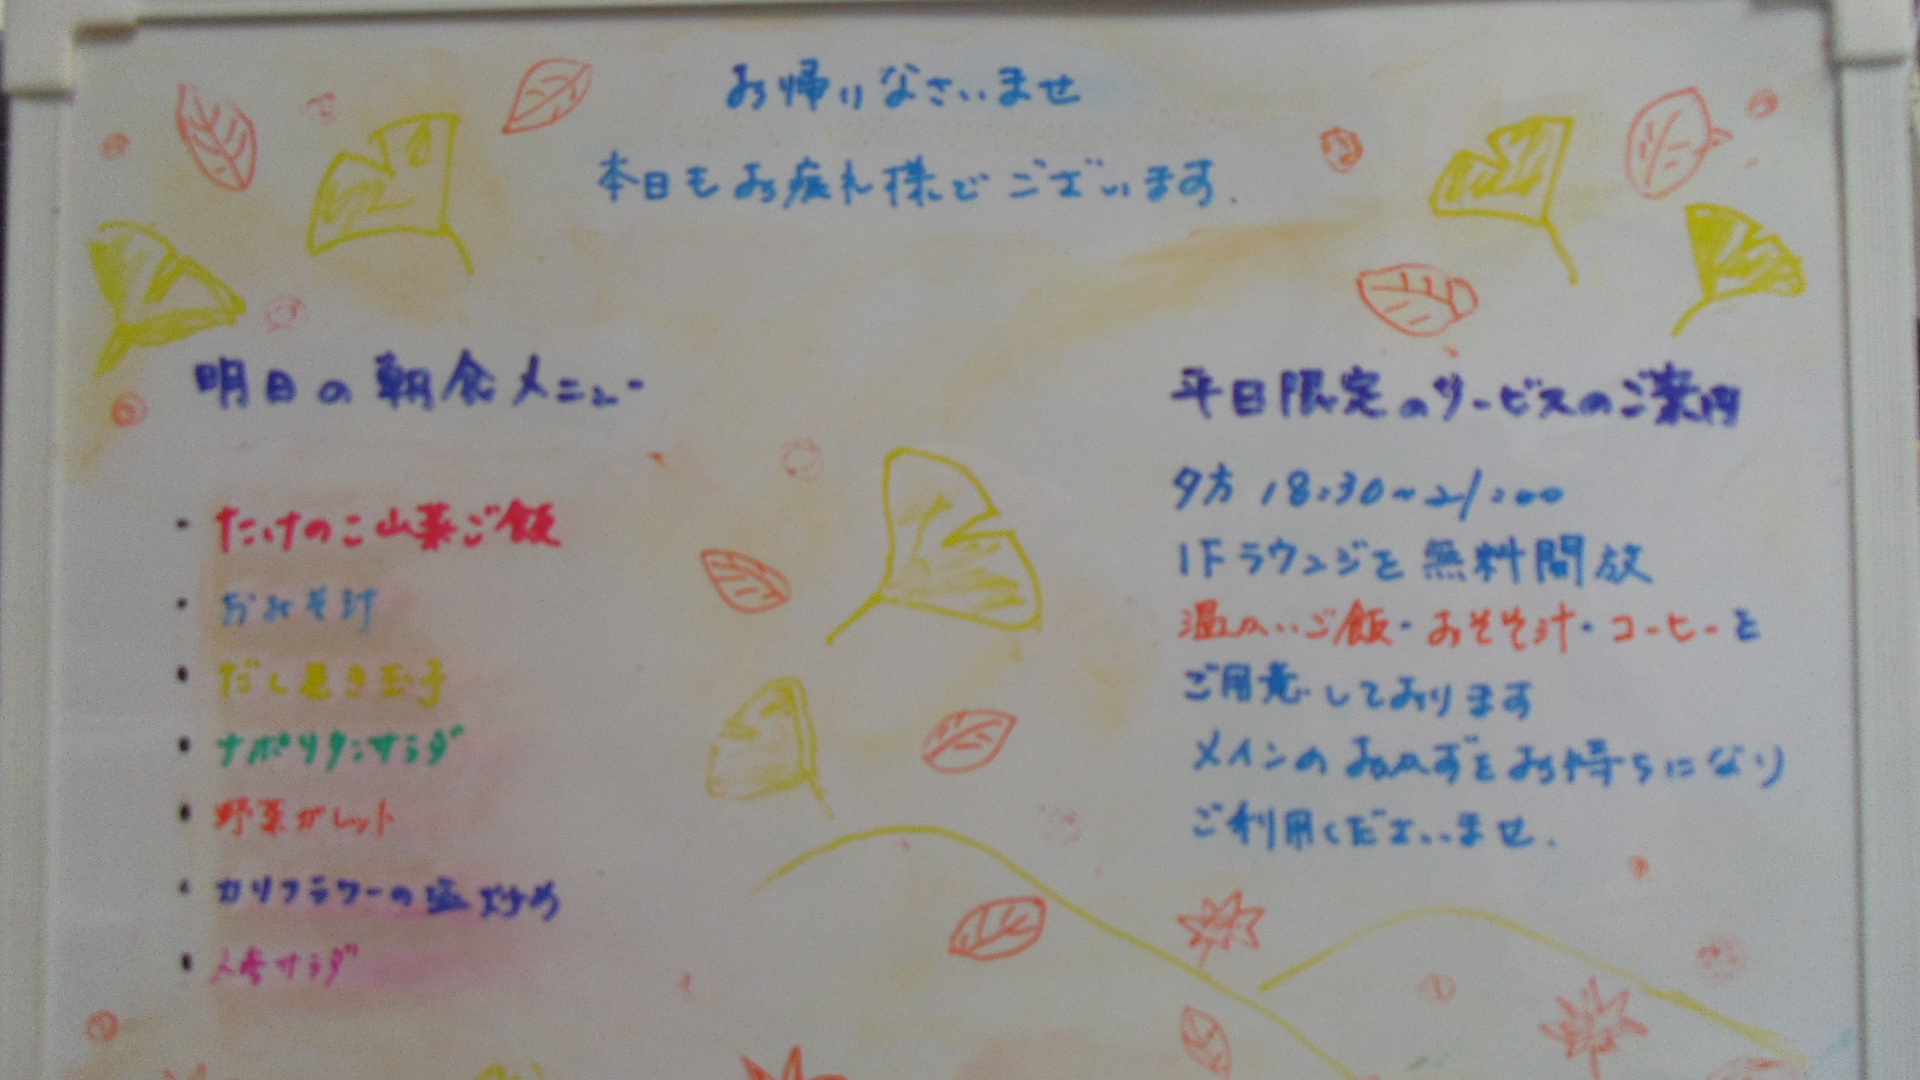 お帰りなさいませ
本日もお疲れ様でございます.
明日の朝食メニュー
・たけのこ山菜ご飯
・おみそ汁
・だし巻き玉子
・ナポリタンサラダ
・野菜ガレット
・カリフラワーの塩炒め
・人参サラダ
平日限定のサービスのご案内
夕方 18:30~21:00
1Fラウンジを無料開放
温かいご飯・おそそ汁・コーヒーを
ご用意しております
メインのおかずをお持ちになり
ご利用くださいませ.